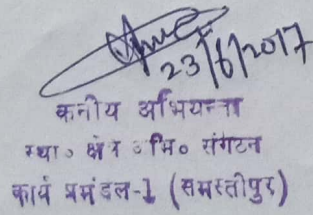 23/6/2017
कनीय अभियन्ता
स्था० क्षे० अभि० संगटन
कार्य प्रमंडल-1 (समस्तीपुर)